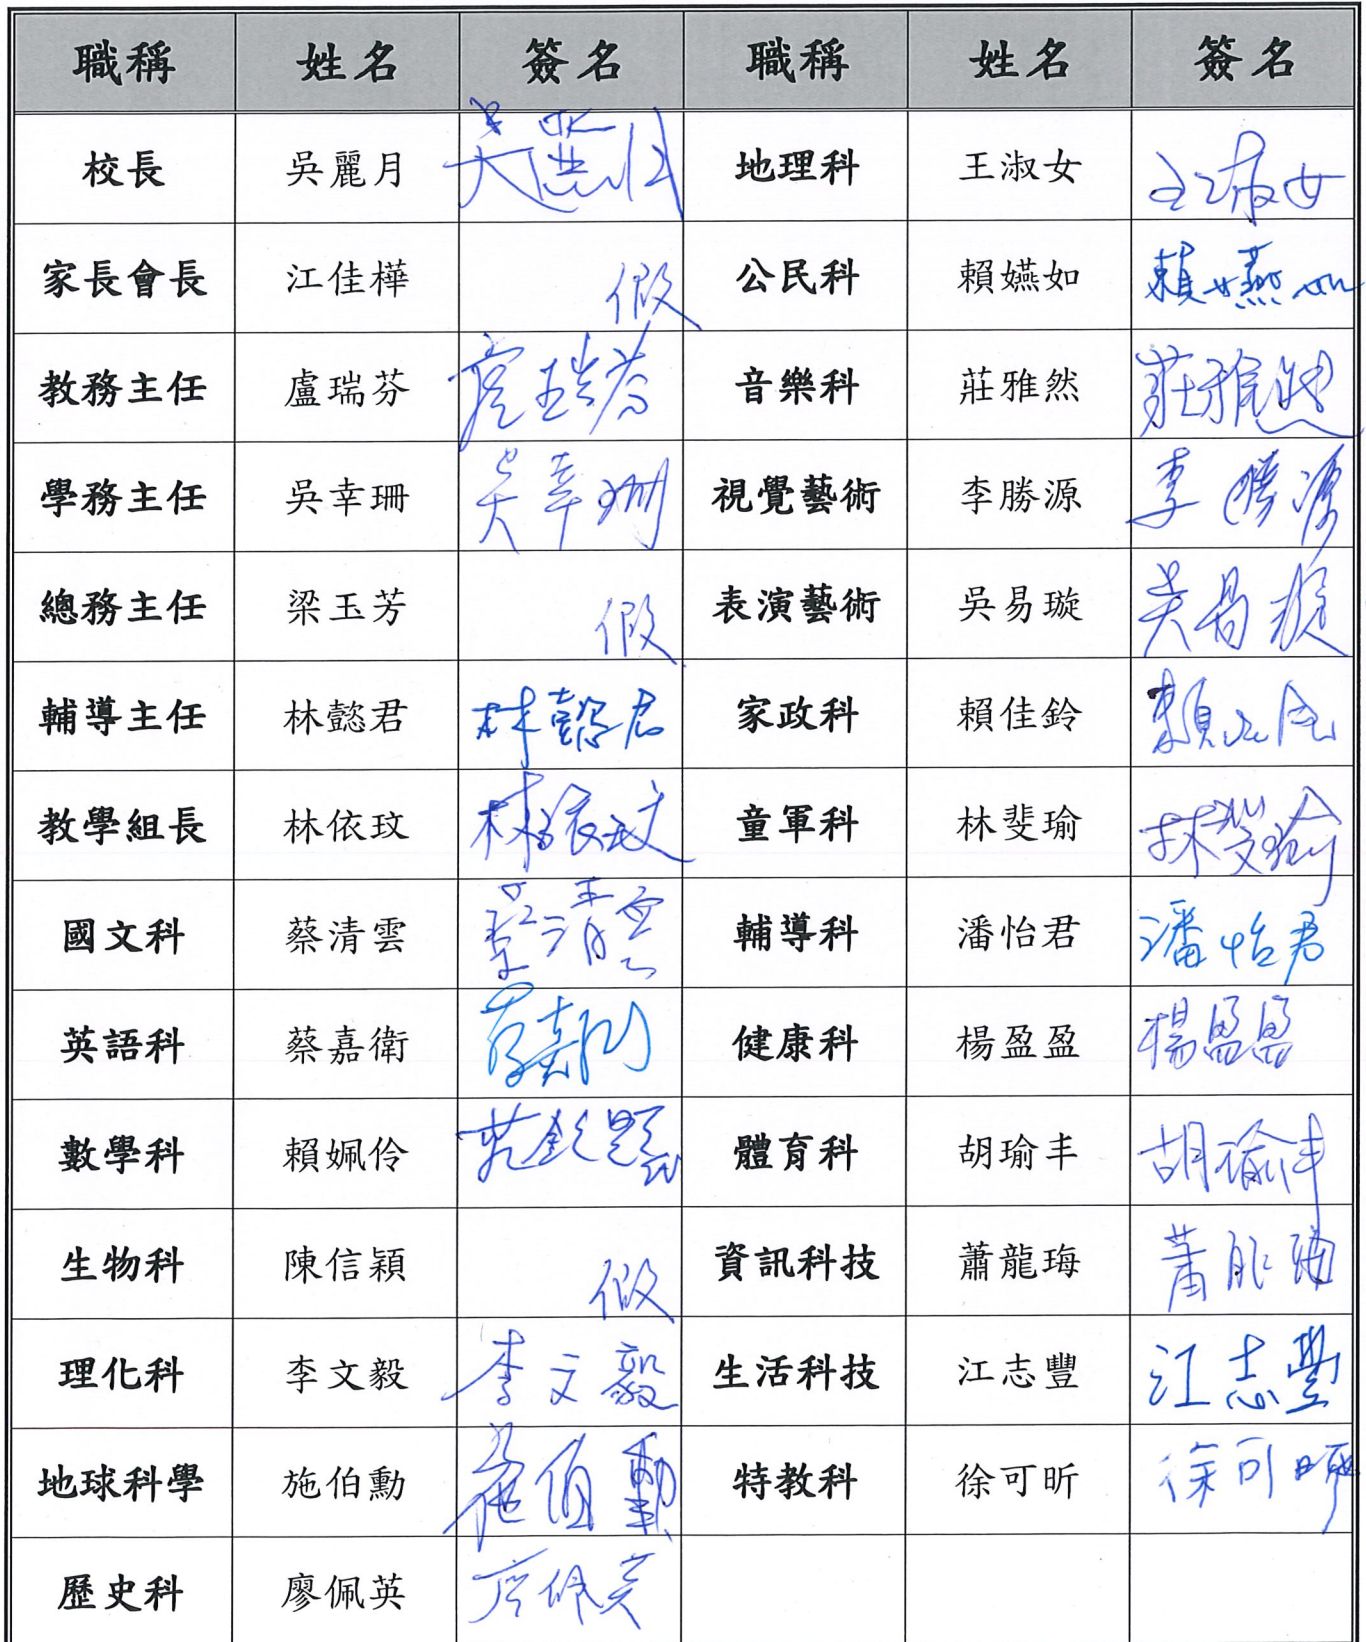 職稱 姓名 簽名 職稱 姓名 簽名
校長 吳麗月 地理科 王淑女 王淑女
家長會長 江佳樺 假 公民科 賴嬿如 賴嬿如
教務主任 盧瑞芬 盧瑞芬 音樂科 莊雅然 莊雅然
學務主任 吳幸珊 吳幸珊 視覺藝術 李勝源 李勝源
總務主任 梁玉芳 假 表演藝術 吳易璇 吳易璇
輔導主任 林懿君 林懿君 家政科 賴佳鈴
教學組長 林依玟 林依玟 童軍科 林斐瑜 林斐瑜
國文科 蔡清雲 蔡清雲 輔導科 潘怡君 潘怡君
英語科 蔡嘉衛 健康科 楊盈盈 楊盈盈
數學科 賴姵伶 體育科 胡瑜丰 胡瑜丰
生物科 陳信穎 假 資訊科技 蕭龍瑦
理化科 李文毅 李文毅 生活科技 江志豐 江志豐
地球科學 施伯勳 施伯勳 特教科 徐可昕 徐可昕
歷史科 廖佩英 廖佩英